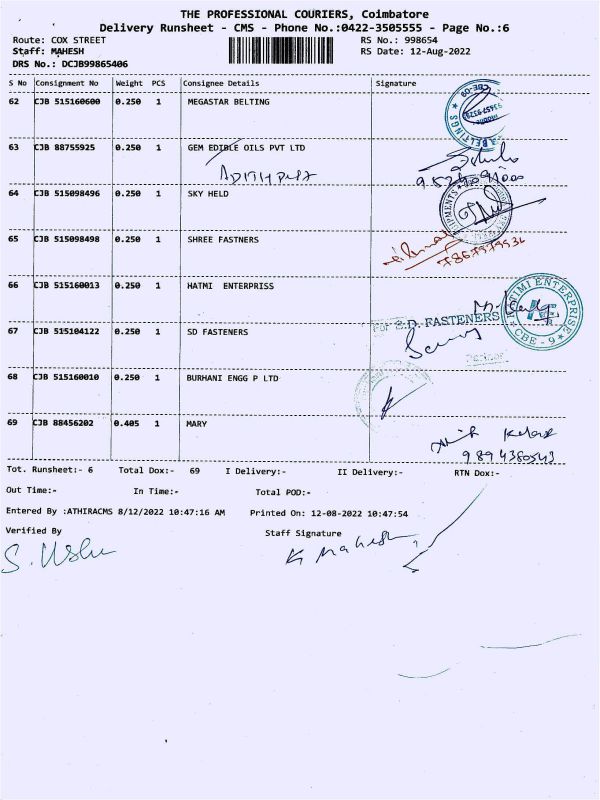 THE PROFESSIONAL COURIERS, Coimbatore
Delivery Runsheet - CMS - Phone No.:0422-3505555 - Page No.:6
Route: COX STREET RS No.: 998654
Staff: MAHESH RS Date: 12-Aug-2022
DRS No.: DCJB99865406
S No Consignment No Weight PCS Consignee Details Signature
62 CJB 515160600 0.250 1 MEGASTAR BELTING
63 CJB 88755925 0.250 1 GEM EDIBLE OILS PVT LTD
64 CJB 515098496 0.250 1 SKY HELD
65 CJB 515098498 0.250 1 SHREE FASTNERS
7867979536
66 CJB 515160013 0.250 1 HATMI ENTERPRISS
For S.D. FASTENERS
CBE - 9
67 CJB 515104122 0.250 1 SD FASTENERS
Partner
68 CJB 515160010 0.250 1 BURHANI ENGG P LTD
69 CJB 88456202 0.405 1 MARY
9894380543
Tot. Runsheet:- 6 Total Dox:- 69 I Delivery:- II Delivery:- RTN Dox:-
Out Time:- In Time:- Total POD:-
Entered By :ATHIRACMS 8/12/2022 10:47:16 AM Printed On: 12-08-2022 10:47:54
Verified By Staff Signature
S. Usha K Mahesh